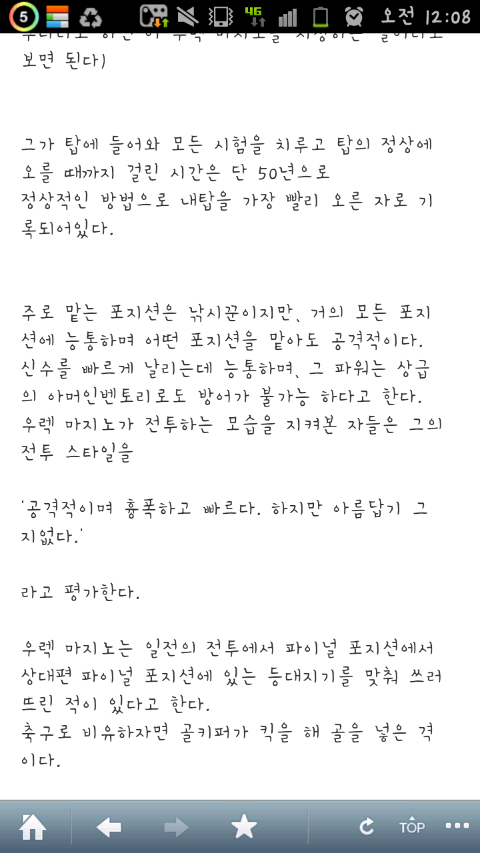 5
4G
오전 12:08
보면 된다)
그가 탑에 들어와 모든 시험을 치루고 탑의 정상에
오를 때까지 걸린 시간은 단 50년으로
정상적인 방법으로 내탑을 가장 빨리 오른 자로 기
록되어있다.
주로 맡는 포지션은 낚시꾼이지만, 거의 모든 포지
션에 능통하며 어떤 포지션을 맡아도 공격적이다.
신수를 빠르게 날리는데 능통하며, 그 파워는 상급
의 아머인벤토리로도 방어가 불가능 하다고 한다.
우렉 마지노가 전투하는 모습을 지켜본 자들은 그의
전투 스타일을
'공격적이며 흉폭하고 빠르다. 하지만 아름답기 그
지없다.'
라고 평가한다.
우렉 마지노는 일전의 전투에서 파이널 포지션에서
상대편 파이널 포지션에 있는 등대지기를 맞춰 쓰러
뜨린 적이 있다고 한다.
축구로 비유하자면 골키퍼가 킥을 해 골을 넣은 격
이다.
TOP